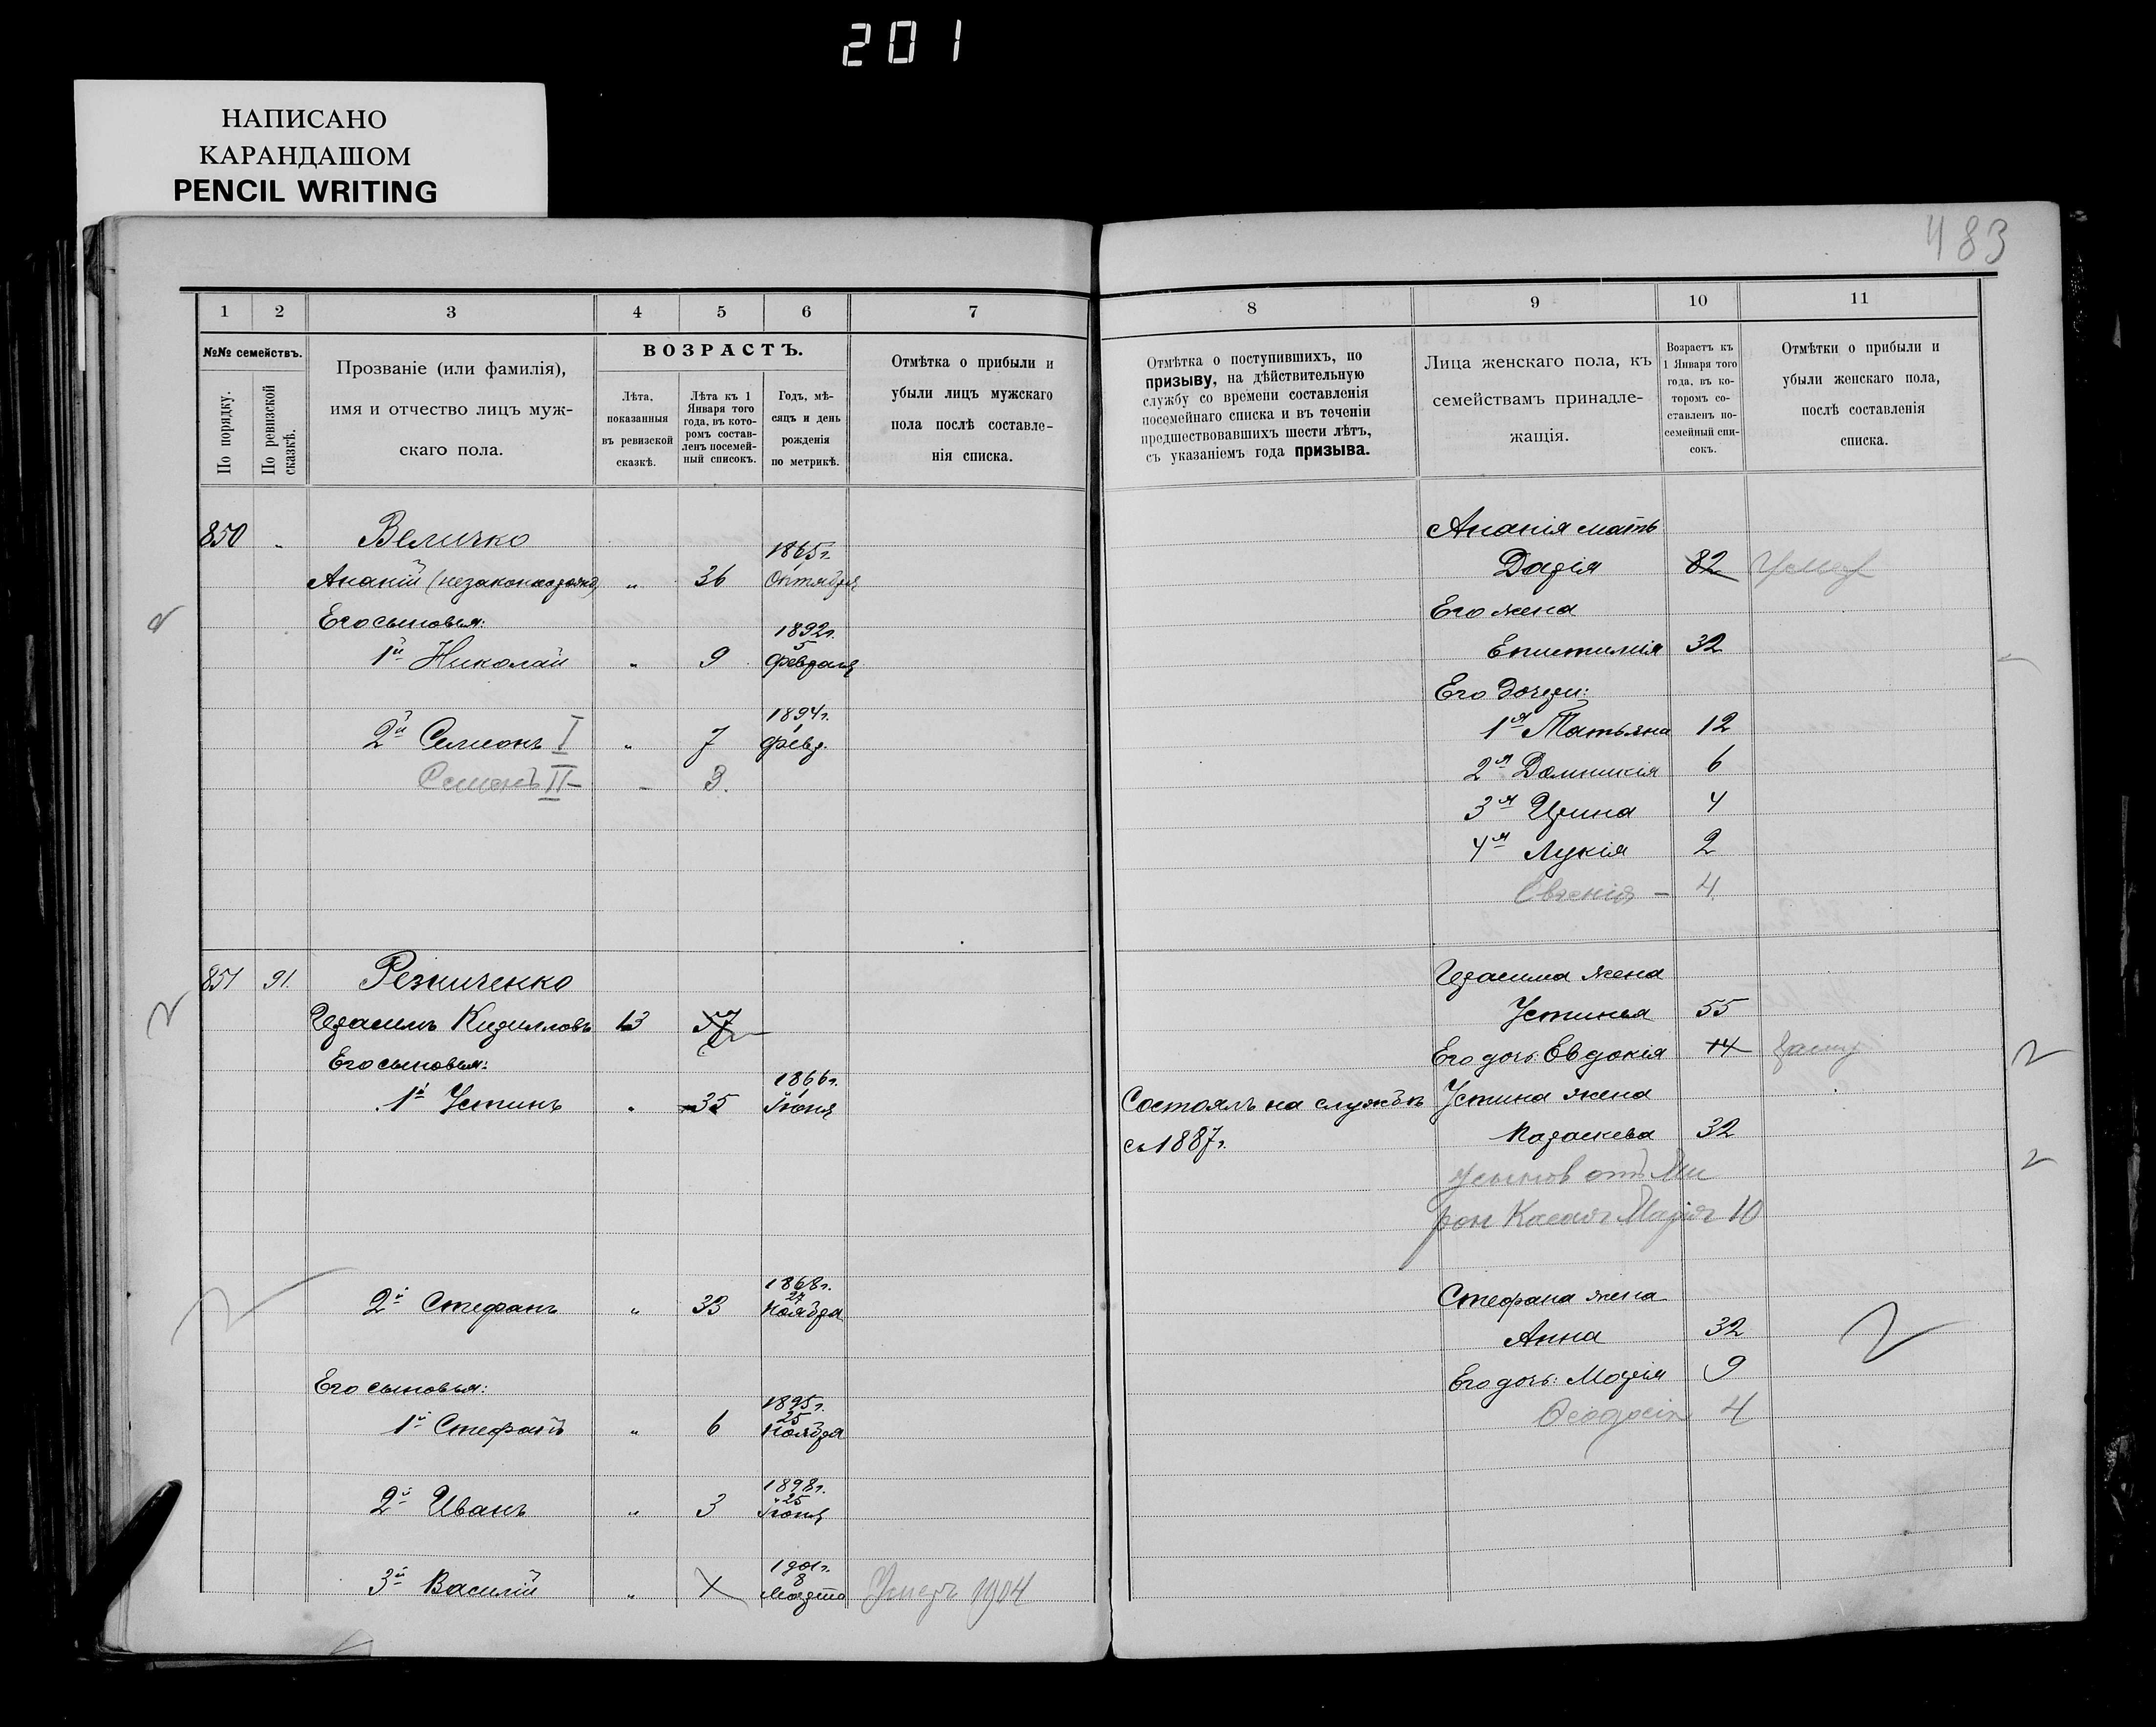 201
НАПИСАНО
КАРАНДАШОМ
PENCIL WRITING
483
1 2 3 4 5 6 7
№№ семействъ.
По порядку.
По ревизской сказкѣ.
Прозваніе (или фамилія),
имя и отчество лицъ муж-
скаго пола.
ВОЗРАСТЪ.
Лѣта,
показанныя
въ ревизской
сказкѣ.
Лѣта къ 1
Января того
года, въ кото-
ромъ состав-
ленъ посемей-
ный списокъ.
Годъ, мѣ-
сяцъ и день
рожденія
по метрикѣ.
Отмѣтка о прибыли и
убыли лицъ мужскаго
пола послѣ составле-
нія списка.
850 „ Величко
1865г.
Ананій (незаконнорожд) „ 36 Октября
Его сыновья:
1892г.
5
1й Николай „ 9 Февраля
1894г.
1
2й Семенъ I „ 7 февр.
Семенъ II – – 3.
851 91. Резниченко
Герасимъ Кирилловъ 13 57
Его сыновья:
1866г.
1
1й Устинъ „ 35 Іюня
1868г.
27
2й Стефанъ „ 33 Ноября
Его сыновья:
1895г.
25
1й Стефанъ „ 6 Ноября
1898г.
25
2й Иванъ „ 3 Іюня
1901г.
8
3й Василій „ Марта Умеръ 1904
8 9 10 11
Отмѣтка о поступившихъ, по
призыву, на дѣйствительную
службу со времени составленія
посемейнаго списка и въ теченіи
предшествовавшихъ шести лѣтъ,
съ указаніемъ года призыва.
Лица женскаго пола, къ
семействамъ принадле-
жащія.
Возрастъ къ
1 Января того
года, въ ко-
торомъ со-
ставленъ по-
семейный спи-
сокъ.
Отмѣтки о прибыли и
убыли женскаго пола,
послѣ составленія
списка.
Ананія мать
Дарія 82 Умер
Его жена
Епистимія 32
Его дочери:
1я Татьяна 12
2я Домникія 6
3я Ирина 4
4я Лукія 2
Евгенія – 4
Герасима жена
Устинья 55
Его дочь: Евдокія 14 замуж
Состоялъ на службѣ Устина жена
съ 1887г. Параскева 32
усынов отъ Ми
рон Марія 10
Стефана жена
Анна 32
Его дочь: Марія 9
Феодосія 4